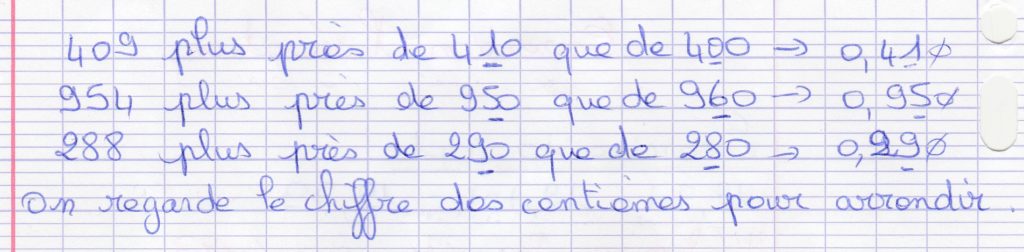 409 plus près de 410 que de 400 → 0,410
954 plus près de 950 que de 960 → 0,950
288 plus près de 290 que de 280 → 0,290
On regarde le chiffre des centièmes pour arrondir.